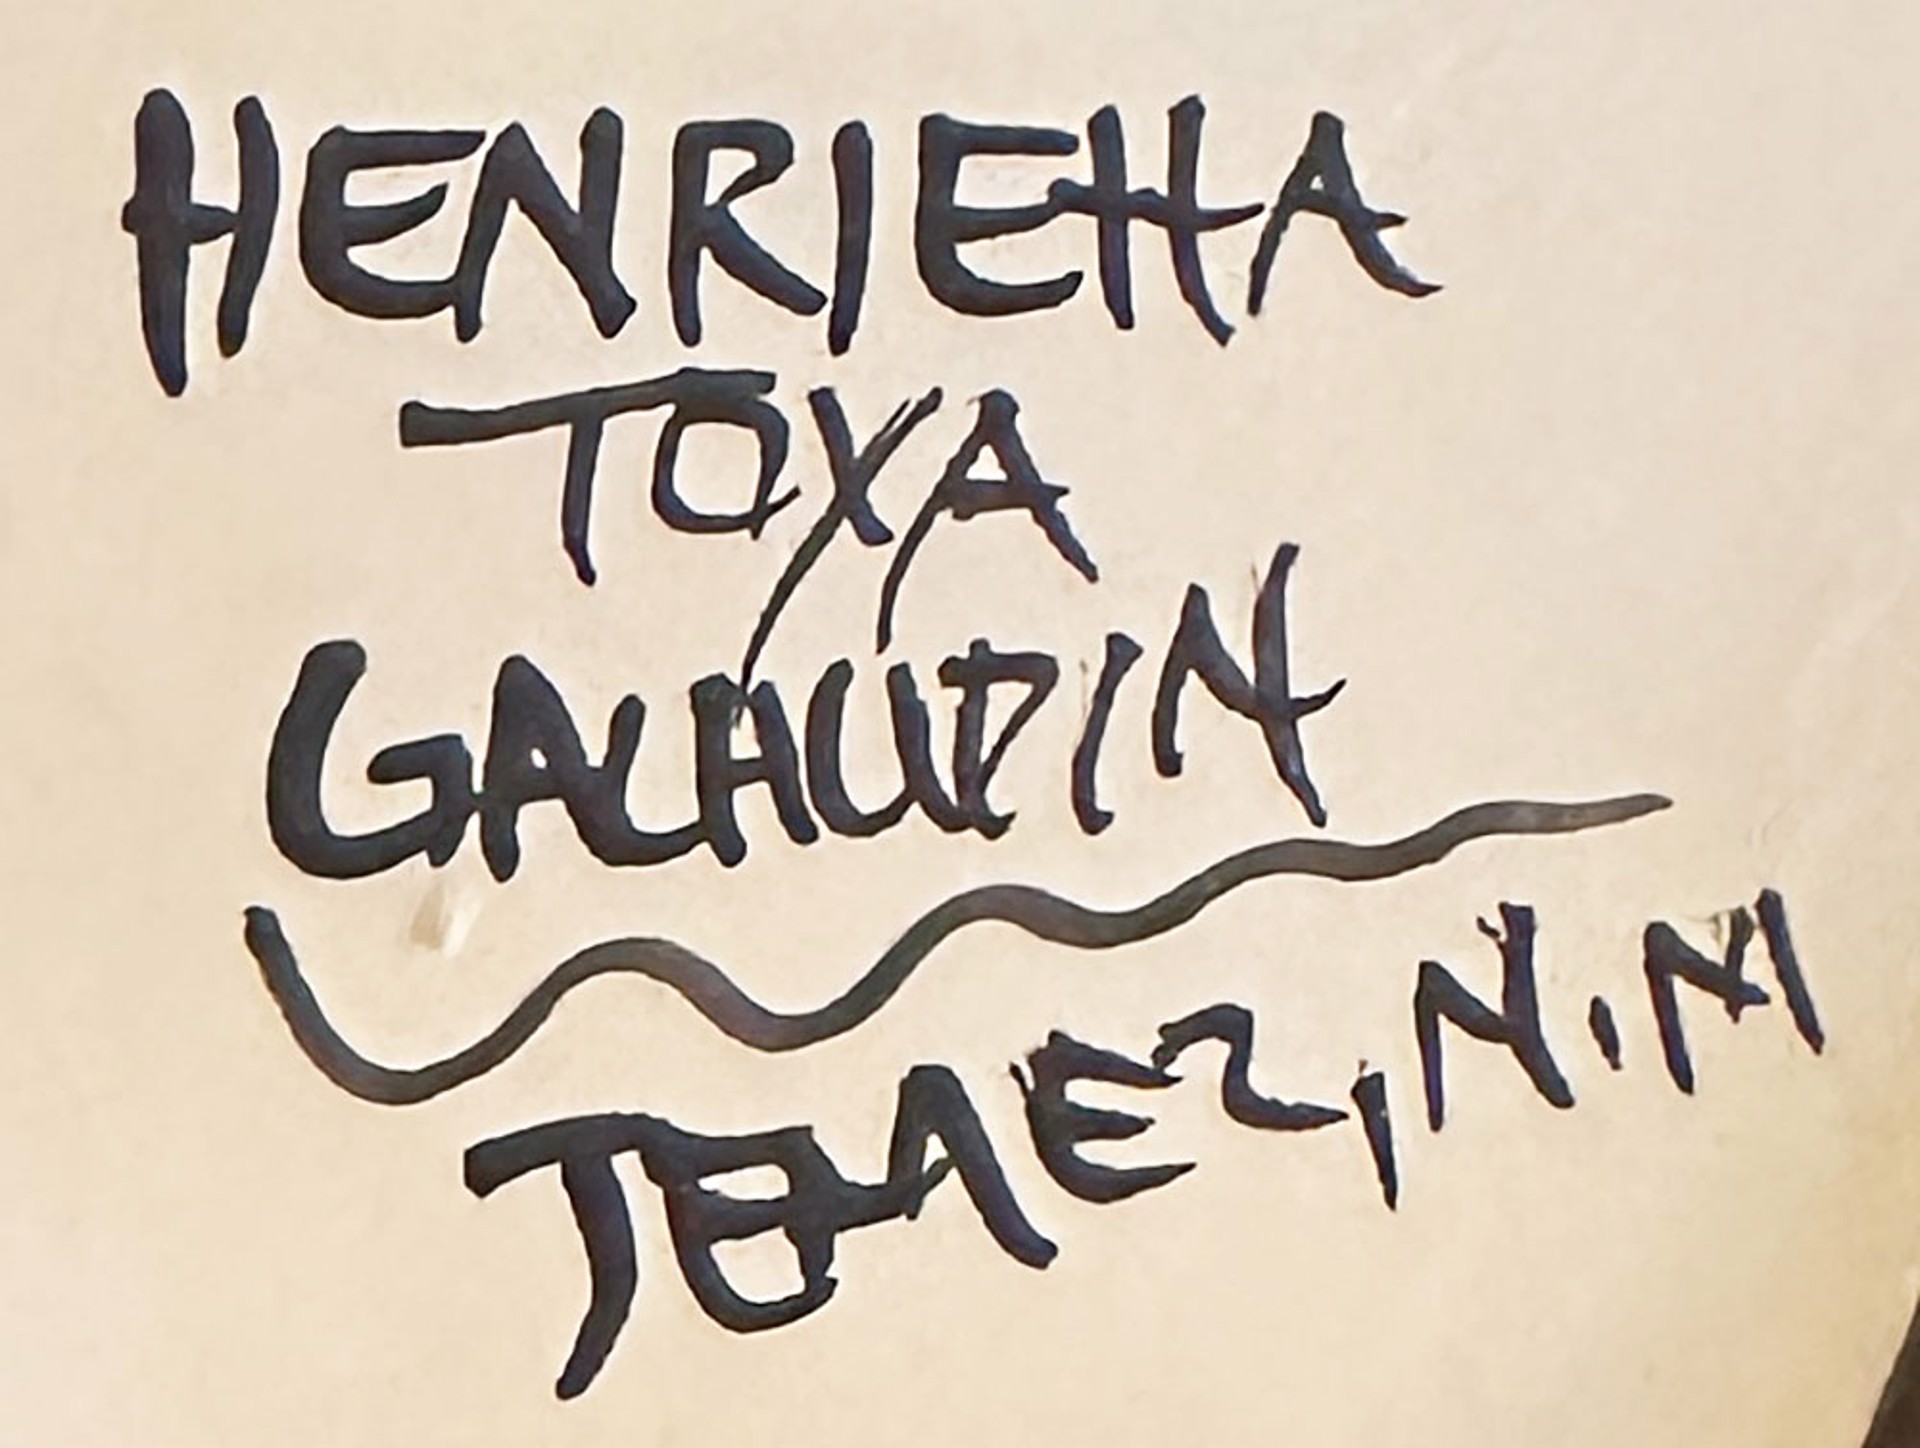 HENRIETTA
TOYA
GACHUPIN
JEMEZ, N.M